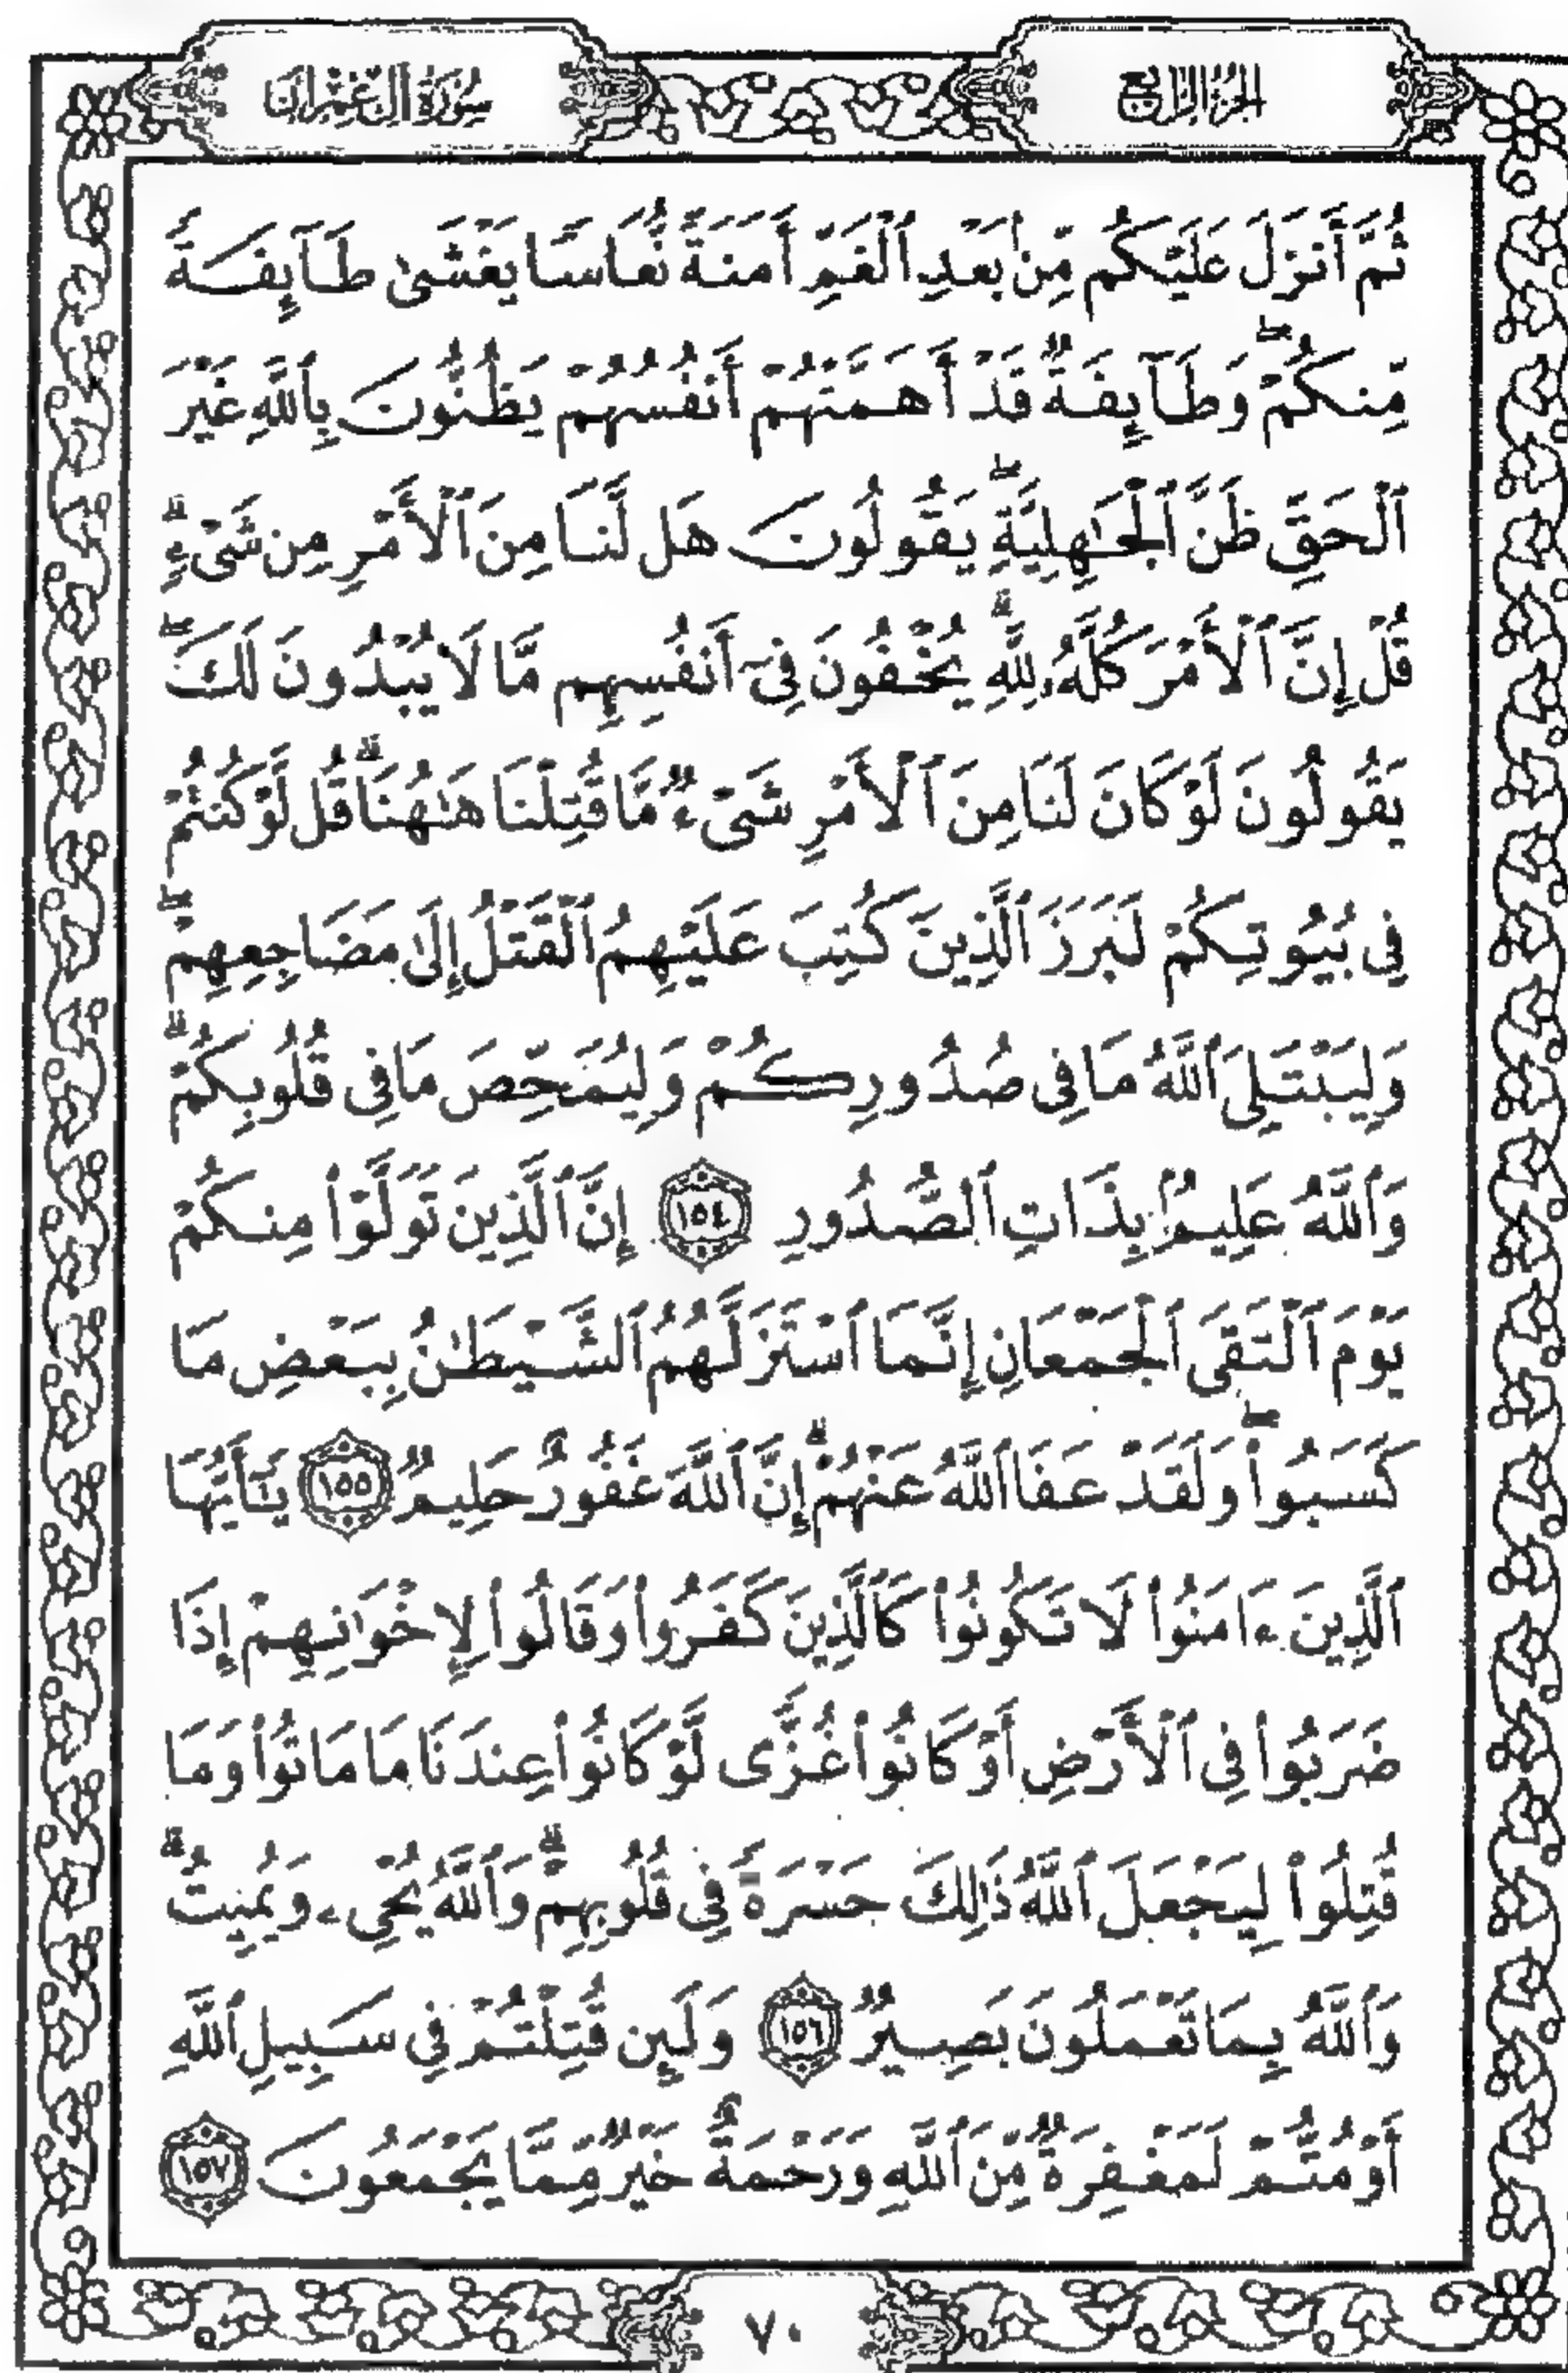 الجزء الرابع
سورة آل عمران
ثُمَّ أَنزَلَ عَلَيْكُم مِّنۢ بَعْدِ ٱلْغَمِّ أَمَنَةً نُّعَاسًا يَغْشَىٰ طَآئِفَةً
مِّنكُمْ ۖ وَطَآئِفَةٌ قَدْ أَهَمَّتْهُمْ أَنفُسُهُمْ يَظُنُّونَ بِٱللَّهِ غَيْرَ
ٱلْحَقِّ ظَنَّ ٱلْجَـٰهِلِيَّةِ ۖ يَقُولُونَ هَل لَّنَا مِنَ ٱلْأَمْرِ مِن شَىْءٍ ۗ
قُلْ إِنَّ ٱلْأَمْرَ كُلَّهُۥ لِلَّهِ ۗ يُخْفُونَ فِىٓ أَنفُسِهِم مَّا لَا يُبْدُونَ لَكَ ۖ
يَقُولُونَ لَوْ كَانَ لَنَا مِنَ ٱلْأَمْرِ شَىْءٌ مَّا قُتِلْنَا هَـٰهُنَا ۗ قُل لَّوْ كُنتُمْ
فِى بُيُوتِكُمْ لَبَرَزَ ٱلَّذِينَ كُتِبَ عَلَيْهِمُ ٱلْقَتْلُ إِلَىٰ مَضَاجِعِهِمْ ۖ
وَلِيَبْتَلِىَ ٱللَّهُ مَا فِى صُدُورِكُمْ وَلِيُمَحِّصَ مَا فِى قُلُوبِكُمْ ۗ
وَٱللَّهُ عَلِيمٌۢ بِذَاتِ ٱلصُّدُورِ ١٥٤ إِنَّ ٱلَّذِينَ تَوَلَّوْا۟ مِنكُمْ
يَوْمَ ٱلْتَقَى ٱلْجَمْعَانِ إِنَّمَا ٱسْتَزَلَّهُمُ ٱلشَّيْطَـٰنُ بِبَعْضِ مَا
كَسَبُوا۟ ۖ وَلَقَدْ عَفَا ٱللَّهُ عَنْهُمْ ۗ إِنَّ ٱللَّهَ غَفُورٌ حَلِيمٌ ١٥٥ يَـٰٓأَيُّهَا
ٱلَّذِينَ ءَامَنُوا۟ لَا تَكُونُوا۟ كَٱلَّذِينَ كَفَرُوا۟ وَقَالُوا۟ لِإِخْوَٰنِهِمْ إِذَا
ضَرَبُوا۟ فِى ٱلْأَرْضِ أَوْ كَانُوا۟ غُزًّى لَّوْ كَانُوا۟ عِندَنَا مَا مَاتُوا۟ وَمَا
قُتِلُوا۟ لِيَجْعَلَ ٱللَّهُ ذَٰلِكَ حَسْرَةً فِى قُلُوبِهِمْ ۗ وَٱللَّهُ يُحْىِۦ وَيُمِيتُ ۗ
وَٱللَّهُ بِمَا تَعْمَلُونَ بَصِيرٌ ١٥٦ وَلَئِن قُتِلْتُمْ فِى سَبِيلِ ٱللَّهِ
أَوْ مُتُّمْ لَمَغْفِرَةٌ مِّنَ ٱللَّهِ وَرَحْمَةٌ خَيْرٌ مِّمَّا يَجْمَعُونَ ١٥٧
٧٠